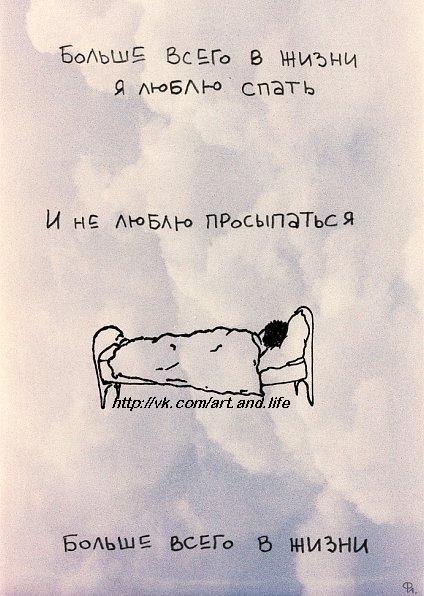 Больше всего в жизни
я люблю спать
И не люблю просыпаться
http://vk.com/art.and.life
Больше всего в жизни